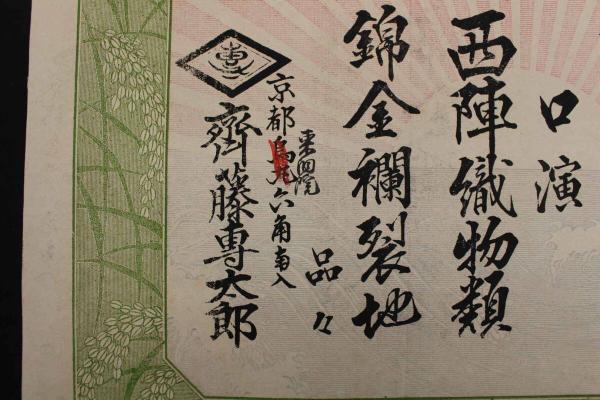 口演
西陣織物類
錦金襴裂地
品々
京都烏丸六角南入
東洞院
齊藤専太郎